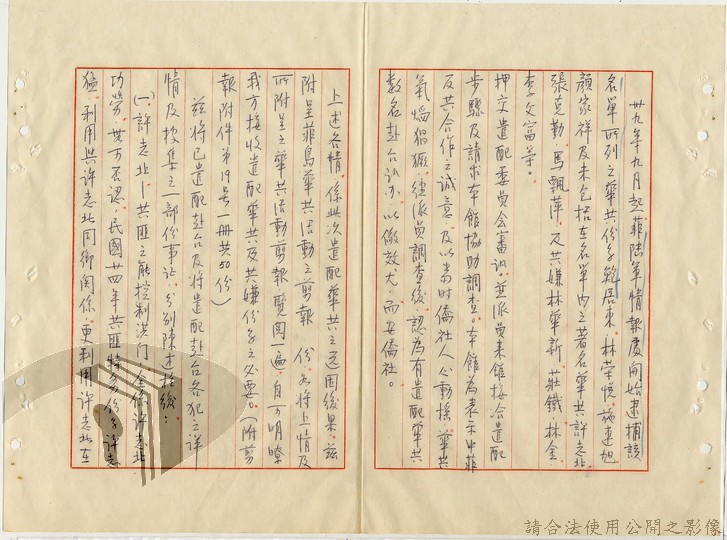 卅九年九月起菲陸軍情報處開始逮捕該
名單所列之華共份子鮑居東、林榮悅、施逮旭
顏家祥及未包括在名單內之著名華共許志北
張克勤、馬飄萍、及共嫌林華新、莊鐵、林金
李文富等。
押交遣配委員會審訊。並派員來館接洽遣配
步驟及請求本館協助調查。本館為表示中菲
反共合作之誠意、及以當時僑社人心動搖、華共
氣焰猖獗、經派員調查後、認為有遣配華共
數名赴台訊办、以儆效尤、而安僑社。
上述各情、係此次遣配華共之遠因後果。茲
附呈菲島華共活動之剪報 份、如將上情及
所附呈之華共活動剪報覽閱一遍、自可明瞭
我方接收遣配華共及共嫌份子之必要。(附剪
報附件第19号一冊共50份)
茲將已遣配赴台及將遣配赴台各犯之詳
情及搜集之一部份事证、分別陳述於後:
(一)許志北—共匪之能控制洪門、全係許志北
功勞、無可否認、民國廿四年共匪特务份子許志
猛、利用與许志北同鄉関係、更利用许志北在
請合法使用公開之影像